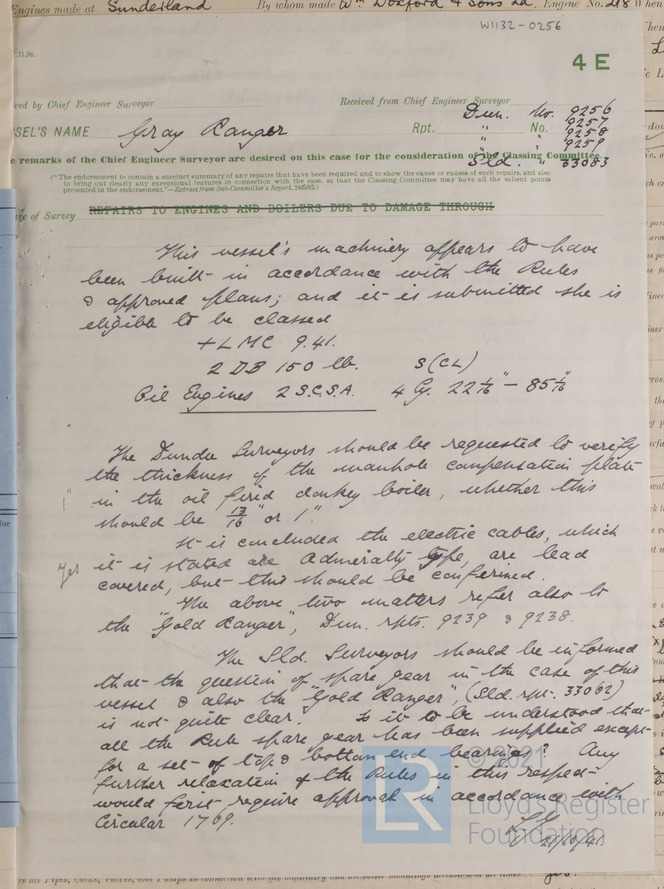 Engines made at Sunderland By whom made Wm Doxford & Sons Ld. Engine No. 218 When
W1132-0256
.11.38.
4 E
ved by Chief Engineer Surveyor
Received from Chief Engineer Surveyor
SEL'S NAME Gray Ranger Rpt. Dun. No. 9256
" No. 9257
" " 9258
9259
Sld. " 33083
e remarks of the Chief Engineer Surveyor are desired on this case for the consideration of the Classing Committee.
("The endorsement to contain a succinct summary of any repairs that have been required and to show the cause or causes of such repairs, and also
to bring out clearly any exceptional features in connection with the case, so that the Classing Committee may have all the salient points
presented in the endorsement."—Extract from Sub-Committee's Report, 24/5/92.)
e of Survey REPAIRS TO ENGINES AND BOILERS DUE TO DAMAGE THROUGH
This vessel's machinery appears to have
been built in accordance with the Rules
& approved plans; and it is submitted she is
eligible to be classed
+ LMC 9.41.
2 DB 150 lb. S(CL)
Oil Engines 2 S.C.S.A. 4 Cy. 22 1/16" – 85 7/16"
The Dundee Surveyors should be requested to verify
the thickness of the manhole compensation plate
1" in the oil fired donkey boiler, whether this
should be 13/16" or 1".
It is concluded the electric cables, which
Yes it is stated are Admiralty type, are lead
covered, but this should be confirmed.
The above two matters refer also to
the "Gold Ranger", Dun. rpts. 9239 & 9238.
The Sld. Surveyors should be informed
that the question of spare gear in the case of this
vessel & also the "Gold Ranger", (Sld. rpt. 33062)
is not quite clear. Is it to be understood that
all the Rule spare gear has been supplied except
for a set of top & bottom end bearings? Any
further relaxation of the Rules in this respect
would first require approval in accordance with
Circular 1769.
21/10/41
© 2021
LR
Lloyd's Register
Foundation